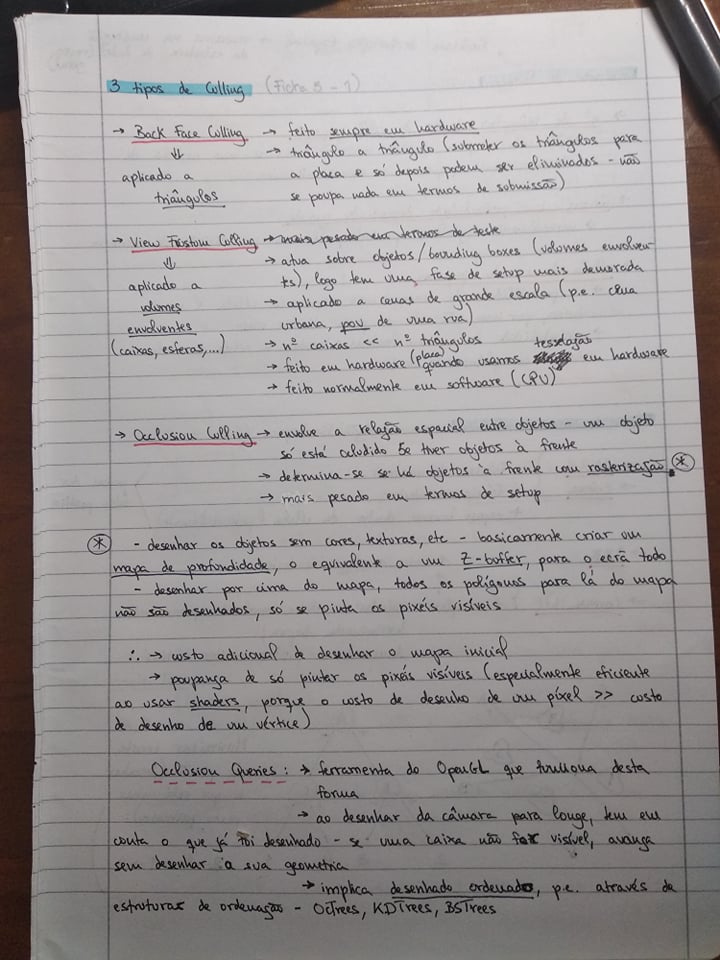 3 tipos de Culling (Ficha 5 - 1)
→ Back Face Culling → feito sempre em hardware
⇓ → triângulo a triângulo (submeter os triângulos para
aplicado a a placa e só depois podem ser eliminados - não
triângulos se poupa nada em termos de submissão)
→ View Frustum Culling → mais pesado em termos de teste
⇓ → atua sobre objetos/bounding boxes (volumes envolven
aplicado a tes), logo tem uma fase de setup mais demorada
volumes → aplicado a cenas de grande escala (p.e. cena
envolventes urbana, pov de uma rua)
(caixas, esferas,...) → nº caixas << nº triângulos
→ feito em hardware (placa) quando usamos tesselação em hardware
→ feito normalmente em software (CPU)
→ Occlusion Culling → envolve a relação espacial entre objetos - um objeto
só está ocludido se tiver objetos à frente
→ determina-se se há objetos à frente com rasterização. *
→ mais pesado em termos de setup
* - desenhar os objetos sem cores, texturas, etc - basicamente criar um
mapa de profundidade, o equivalente a um Z-buffer, para o ecrã todo
- desenhar por cima do mapa, todos os polígonos para lá do mapa
não são desenhados, só se pinta os pixéis visíveis
∴ → custo adicional de desenhar o mapa inicial
→ poupança de só pintar os pixéis visíveis (especialmente eficiente
ao usar shaders, porque o custo de desenho de um píxel >> custo
de desenho de um vértice)
Occlusion Queries: → ferramenta do OpenGL que funciona desta
forma
→ ao desenhar da câmara para longe, tem em
conta o que já foi desenhado - se uma caixa não for visível, avança
sem desenhar a sua geometria
→ implica desenhado ordenado, p.e. através de
estruturas de ordenação - OcTrees, KDTrees, BSTrees